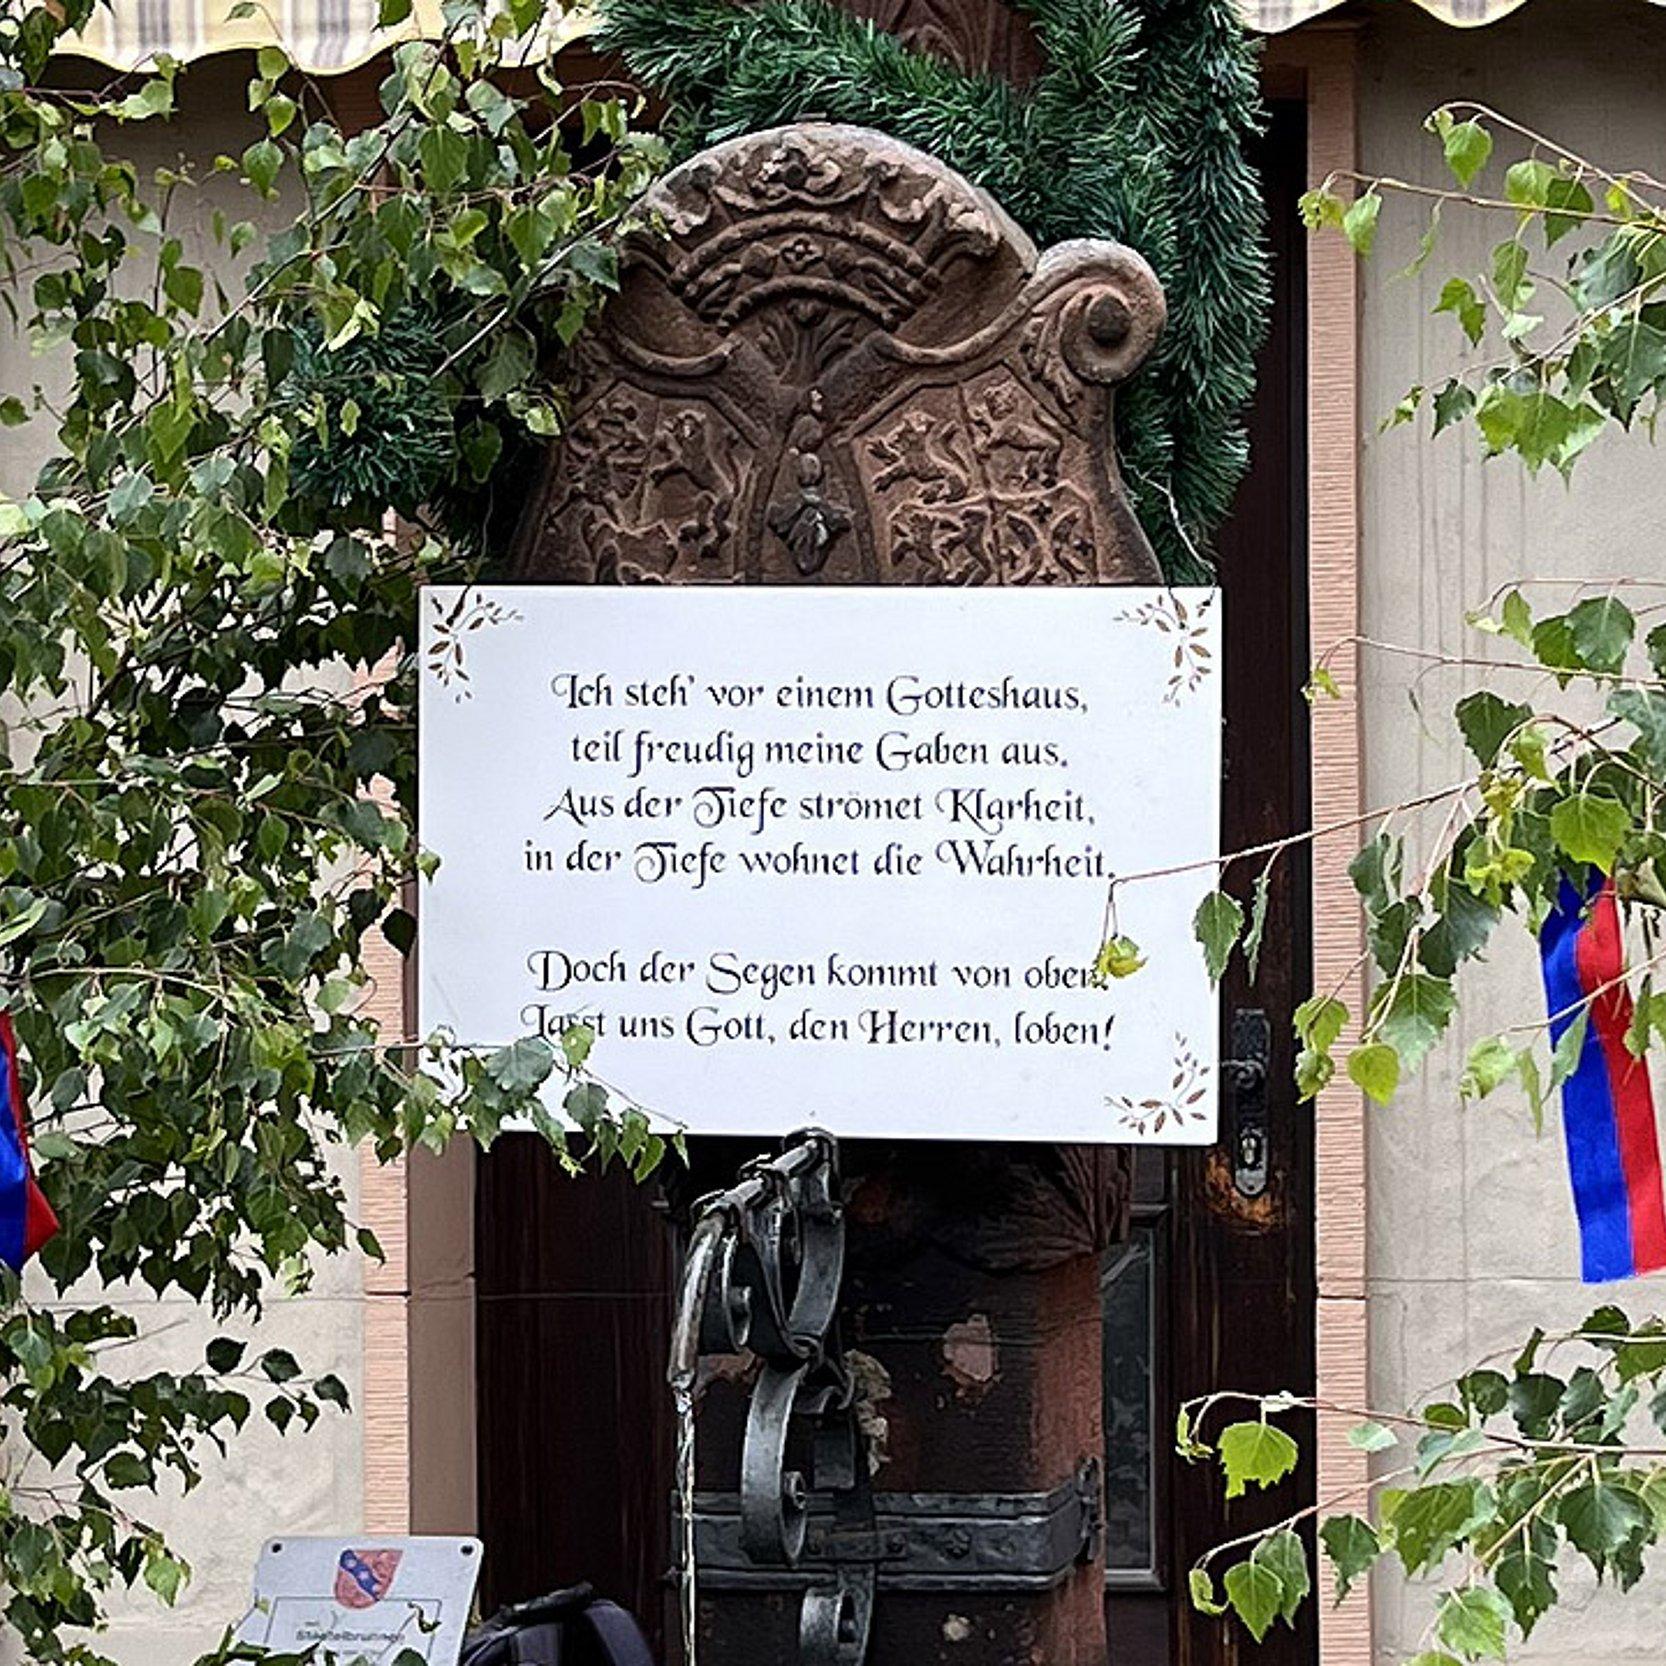 Ich steh' vor einem Gotteshaus,
teil freudig meine Gaben aus.
Aus der Tiefe strömet Klarheit,
in der Tiefe wohnet die Wahrheit.
Doch der Segen kommt von oben.
Lasst uns Gott, den Herren, loben!